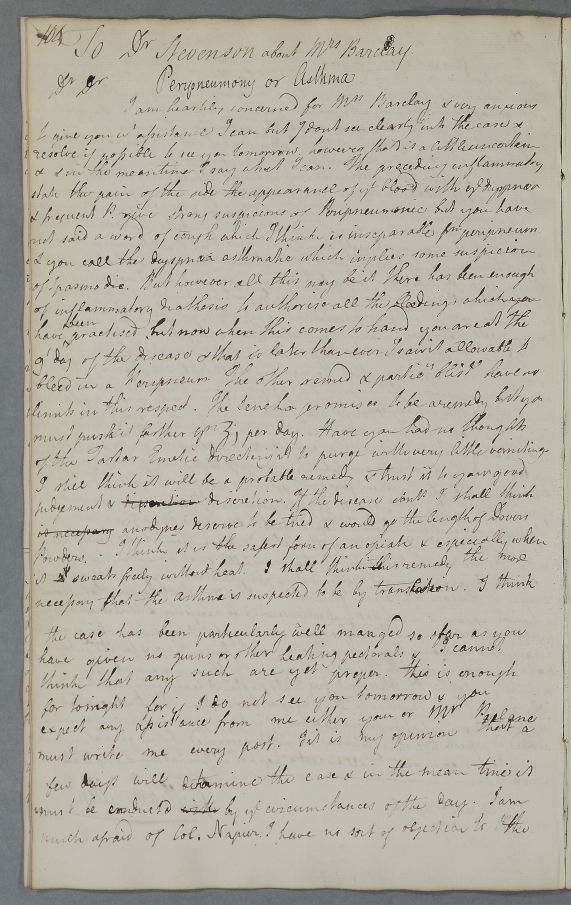 To Dr Stevenson about Mrs Barclay.
Dr Sr Peripneumony or Asthma
I am heartily concerned for Mrs Barclay & very anxious
to give you wt assistance I can but I dont see clearly into the case &
resolve if possible to see you tomorrow, however that is a little uncertain
& in the meantime I say what I can. The preceeding inflammatory
state the pain of the side the appearance of ye blood with ye dyspnœa
& frequent P. give strong suspicions of Peripneumonie but you have
not said a word of cough which I think is inseparable from peripneum
& you call the dyspnœa asthmatic which implies some suspicion
of spasmodic. But however all this may be it there has been enough
of inflammatory diathesis to authorise all the bleedings which you
have been practised but now when this comes to hand you are at the
9th day of the disease & that is later than ever I saw it allowable to
bleed in a Peripneum The other remed & partic blistrs have no
limits in this respect. The Seneka promises to be a remedy but you
must push it farther yn ʒj per day. Have you had no thoughts
of the Tartar Emetic directing it to purge with very little vomiting
I still think it will be a probable remedy & trust it to your good
judgement & discretion. If the disease conts I shall think
anodynes deserve to be tried & would go the length of Dovers
Powders. I think it is the safest form of an opiate & especially when
it sweats freely without heat. I shall think this remedy the more
necessary that the asthma is suspected to be by translation. I think
the case has been particularly well managed so far as you
have given no gums or other heating pectorals & I cannot
think that any such are yet proper. this is enough
for tonight for if I do not see you tomorrow & you
expect any assistance from me either you or Mr
must write me every post. It is my opinion that a
few days will determine the case & in the mean time it
must be conducted by ye circumstances of the day. I am
much afraid of Col. Napier. I have no sort of objection to the